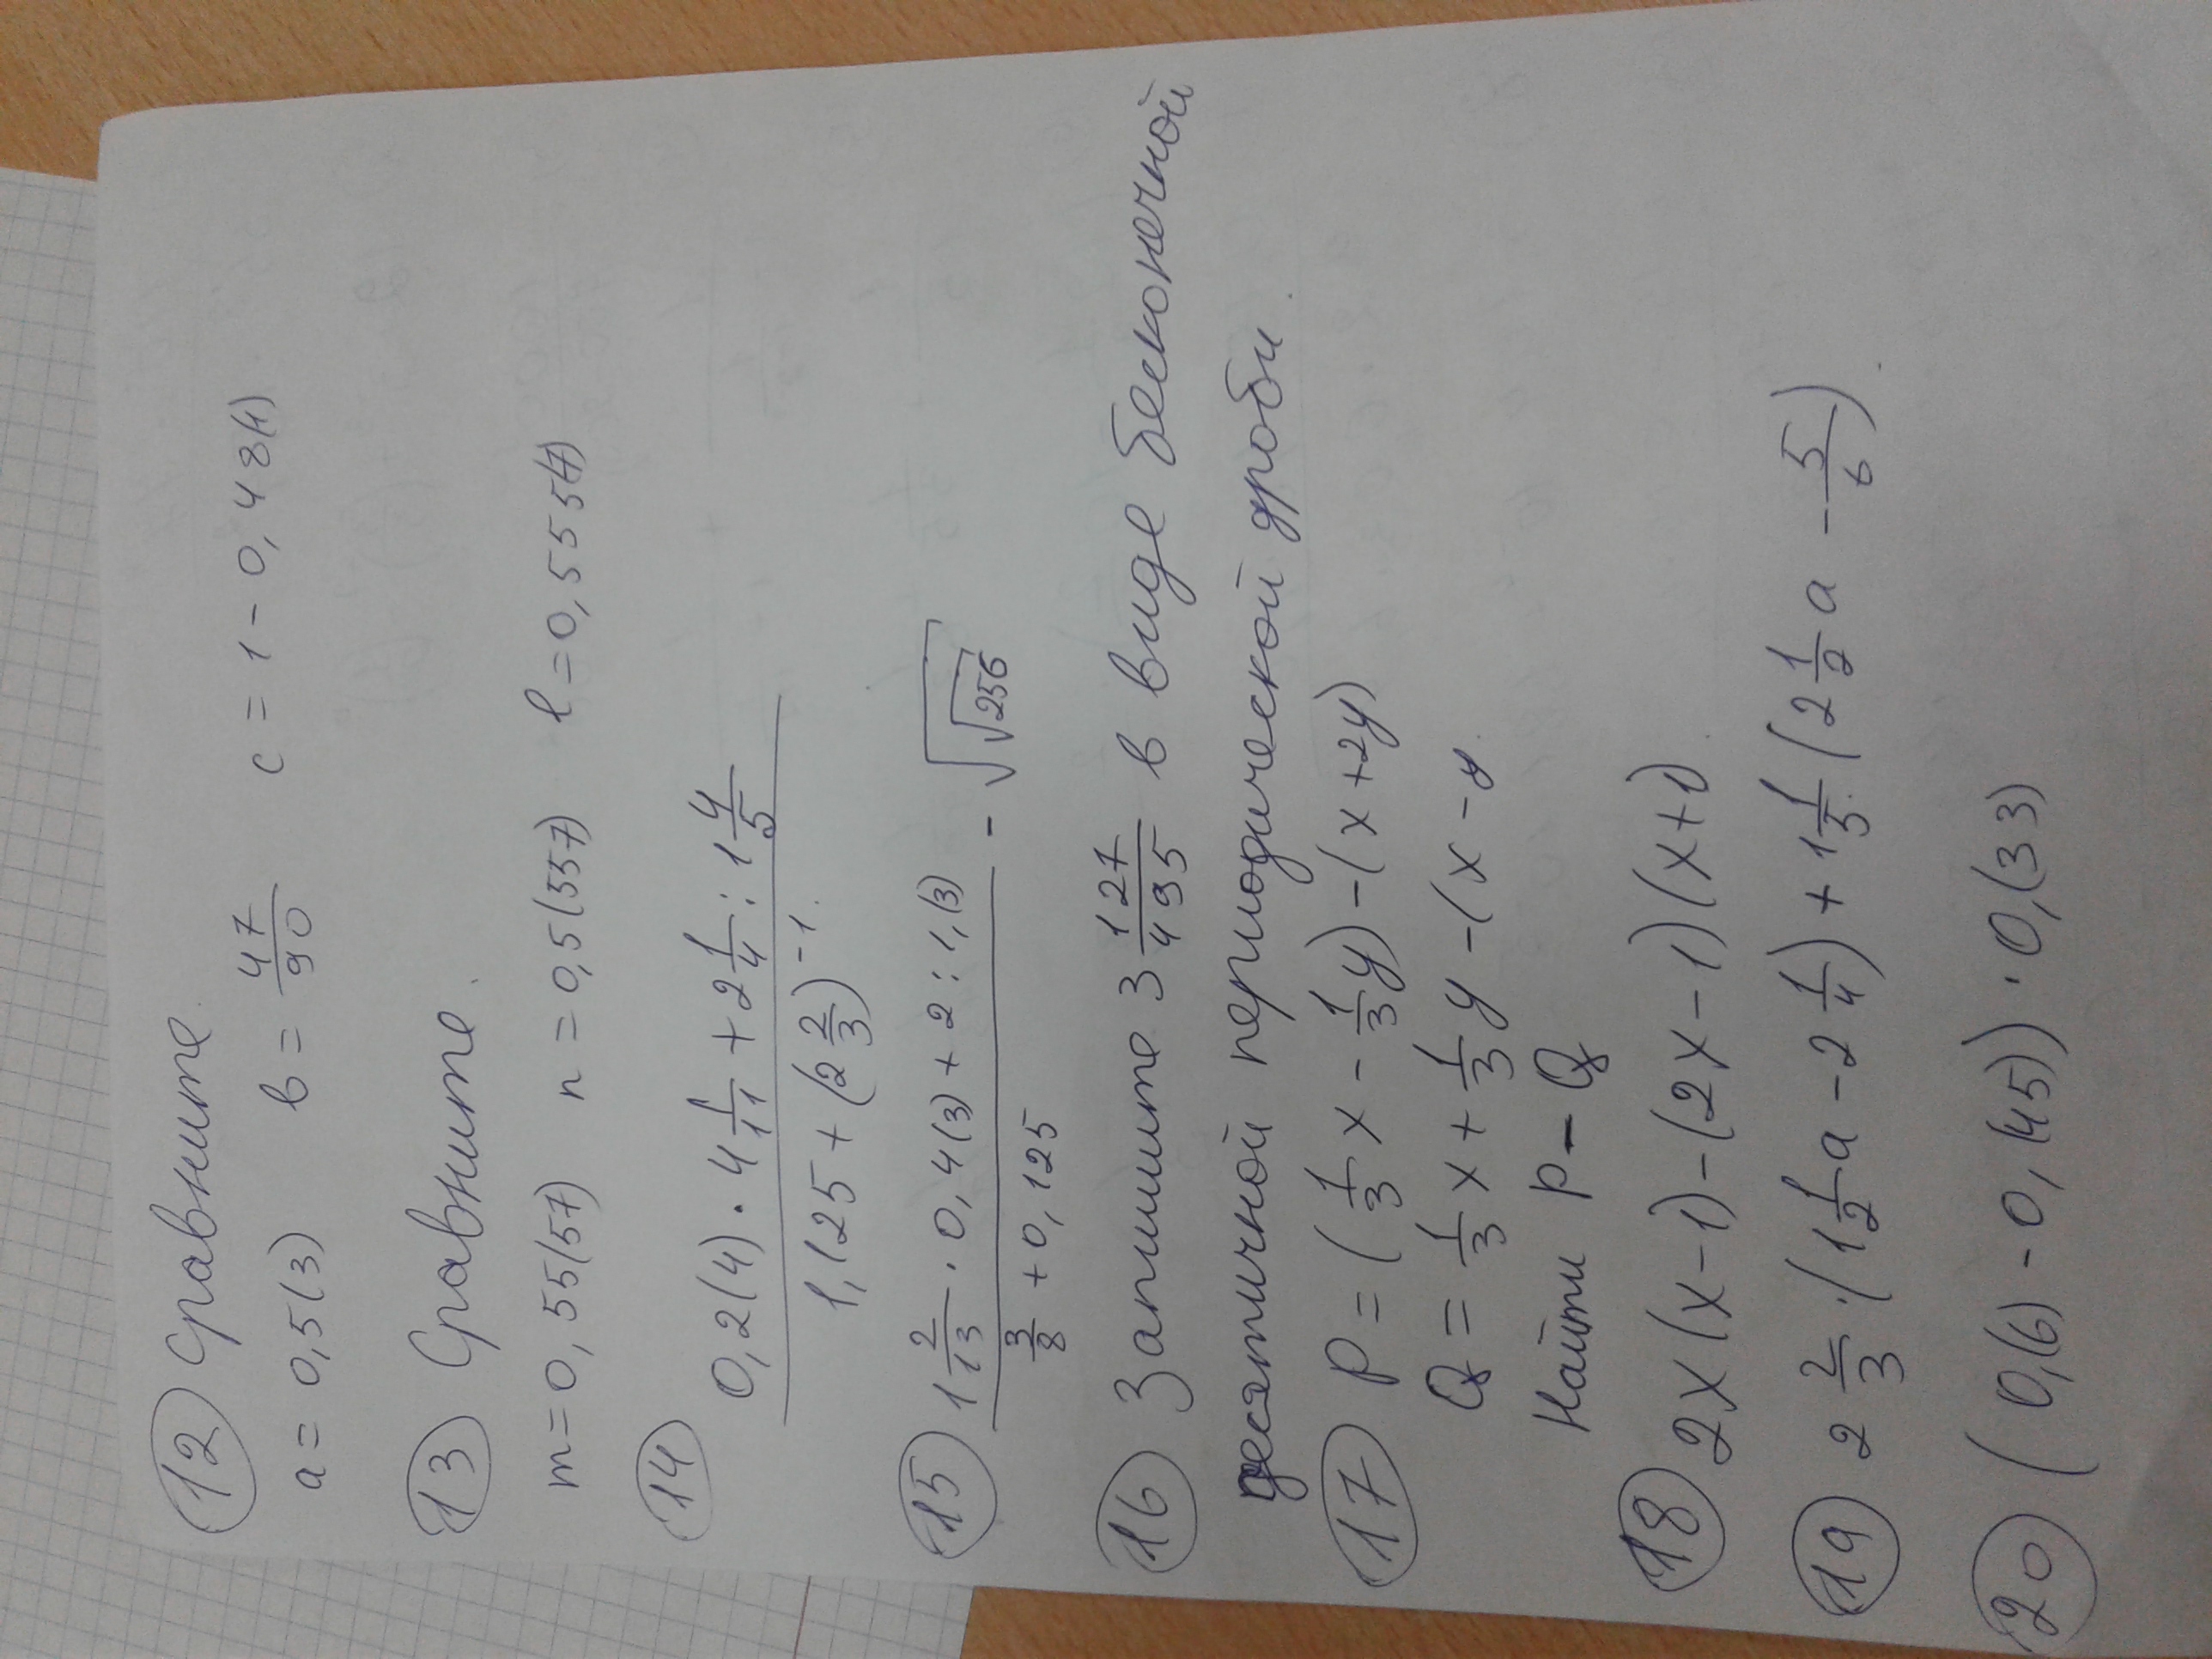 12 Сравните.
a = 0,5(3) b = 47/90 c = 1 - 0,48(1)
13 Сравните.
m = 0,55(57) n = 0,5(557) l = 0,555(7)
14 (0,2(4) · 4 1/11 + 2 1/4 : 1 4/5) / (1,125 + (2 2/3)^-1).
15 (1 2/13 · 0,4(3) + 2 : 1,(3)) / (3/8 + 0,125) - √√256
16 Запишите 3 127/495 в виде бесконечной
десятичной периодической дроби.
17 P = (1/3 x - 1/3 y) - (x + 2y)
Q = 1/3 x + 1/3 y - (x - y
Найти P - Q
18 2x(x-1) - (2x-1)(x+1).
19 2 2/3 · (1 1/2 a - 2 1/4) + 1 1/3 · (2 1/2 a - 5/6).
20 (0,(6) - 0,(45)) · 0,(33)